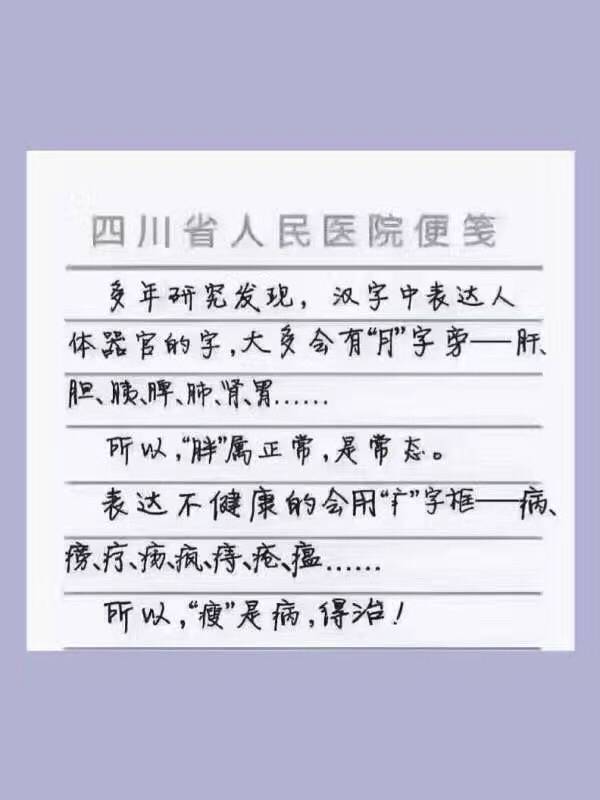 四川省人民医院便笺
多年研究发现，汉字中表达人
体器官的字，大多会有“月”字旁——肝、
胆、胰、脾、肺、肾、胃……
所以，“胖”属正常，是常态。
表达不健康的会用“疒”字框——病、
痨、疗、疡、疯、痔、疮、瘟……
所以，“瘦”是病，得治！